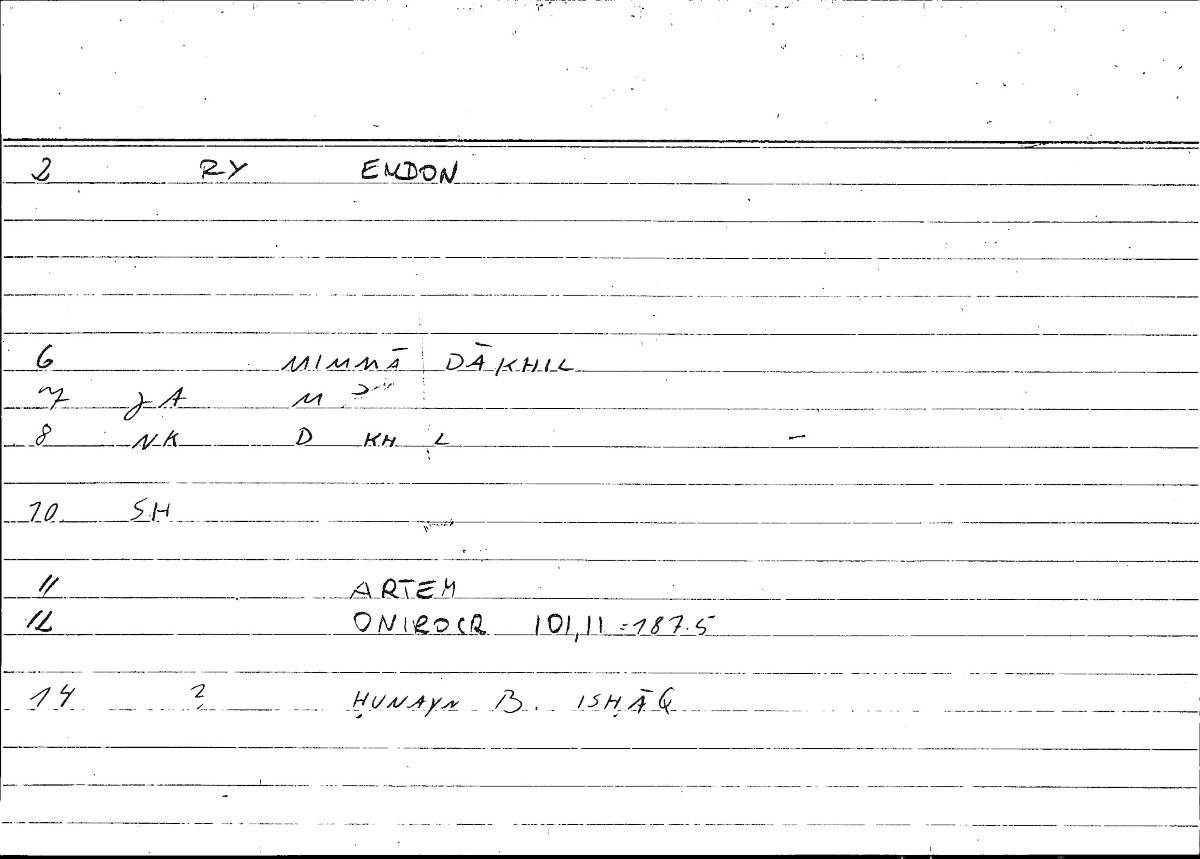 2 RY ENDON
6 MIMMĀ DĀKHIL
7 JA M
8 NK D KH L –
10 SH
11 ARTEM
12 ONIROCR 101,11 = 187.5
14 ? ḤUNAYN B. ISḤĀQ